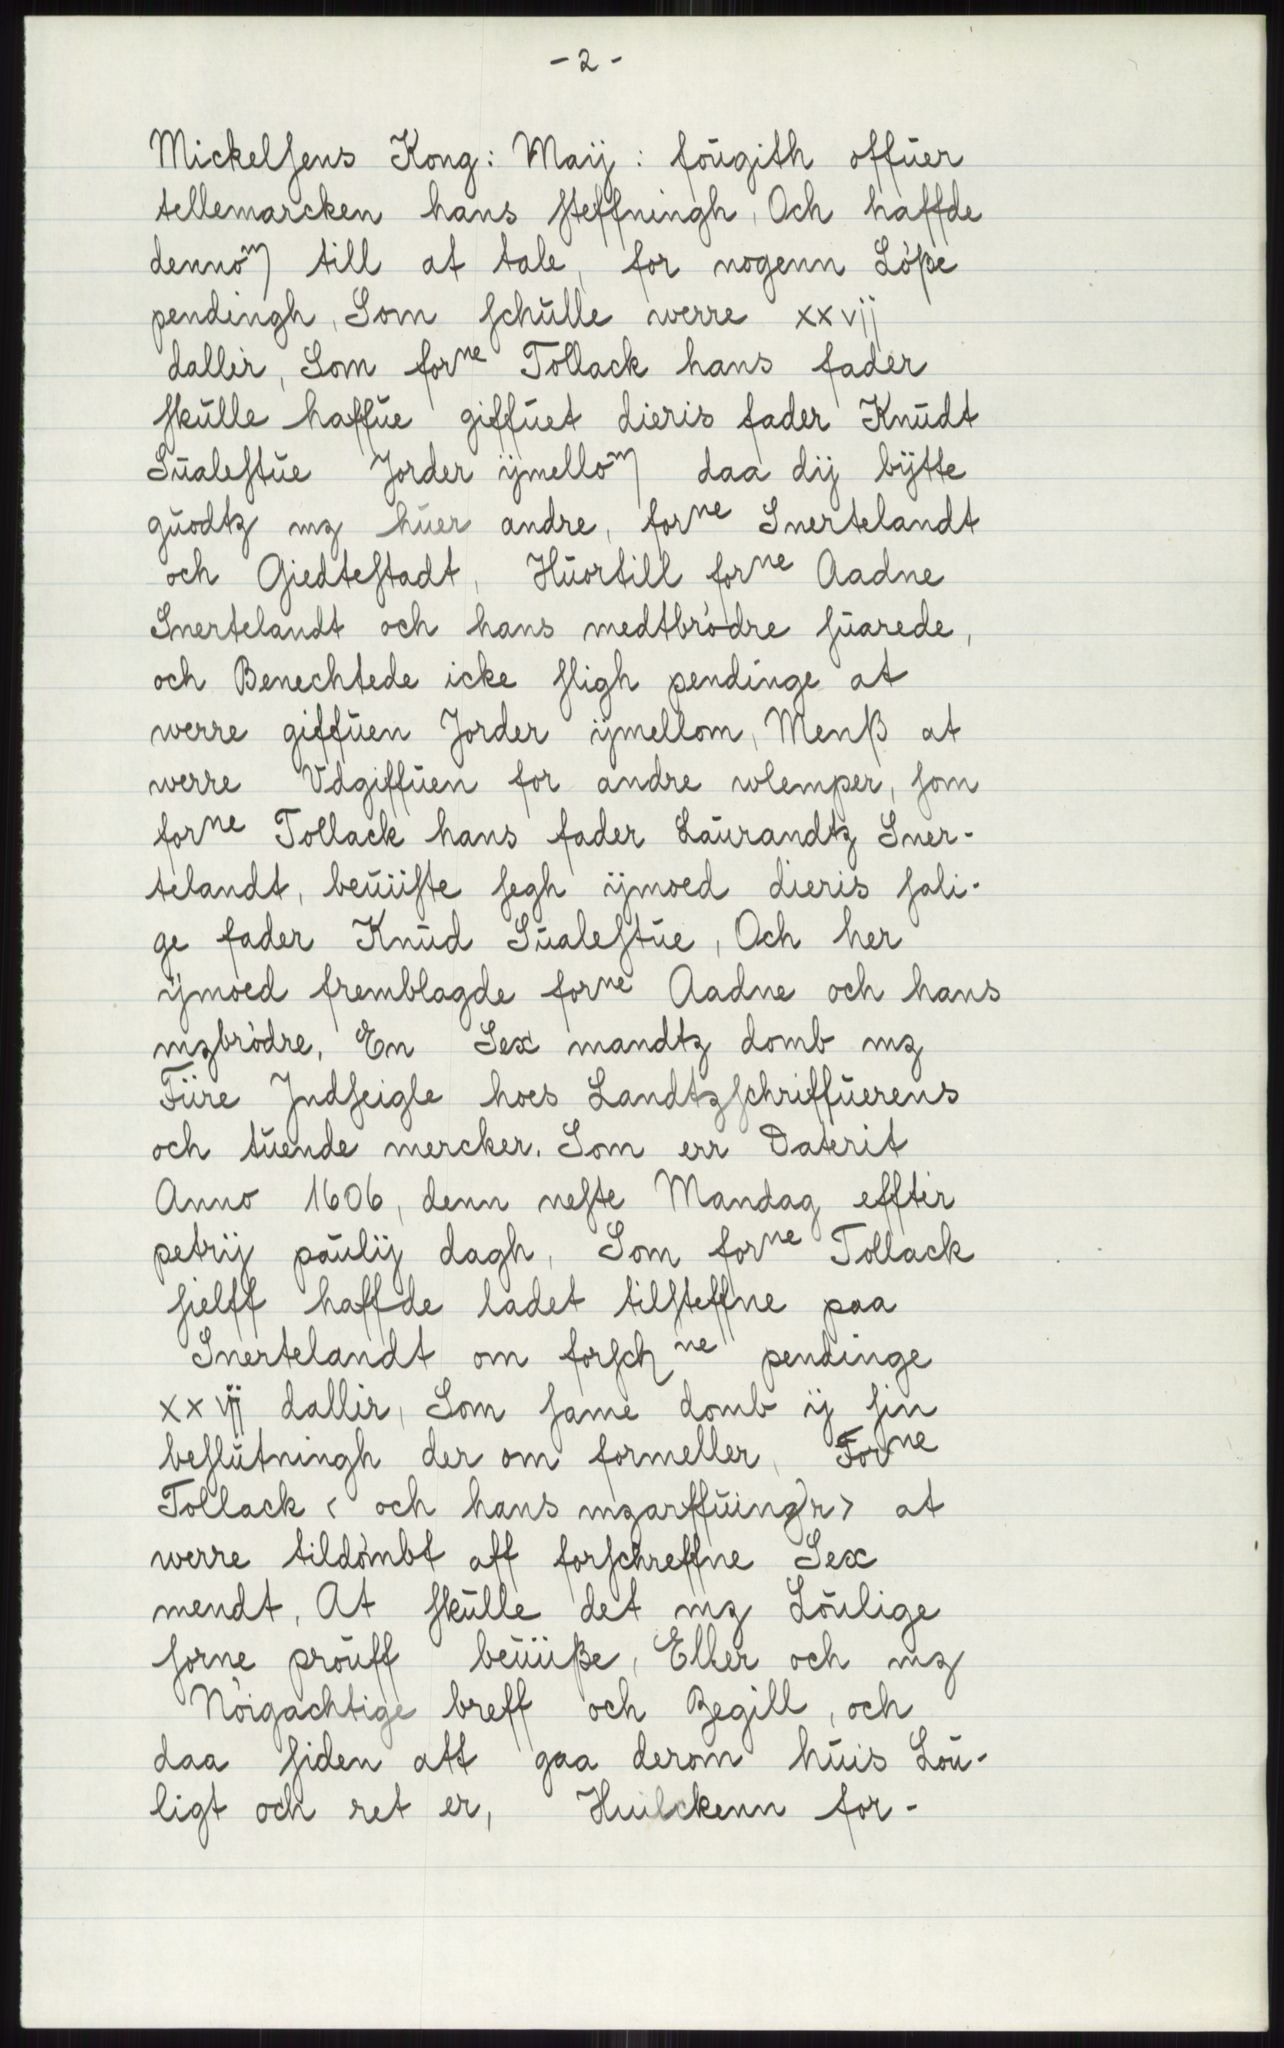 - 2 -
Mickelsens Kong: Maij: foŭgith offŭer
tellemarcken hans steffningh, Och haffde
dennom till at tale, for nogenn Lóße
pendingh, Som schŭlle werre xxvij
dallir, Som forne Tollack hans fader
skŭlle haffŭe giffŭet dieris fader Knŭdt
Sŭalestŭe Jorder ijmellom daa dij bÿtte
gŭodtz mz hŭer andre, forne Snertelandt
och Giedtestadt, Hŭortill forne Aadne
Snertelandt och hans medtbródre sŭarede,
och Benechtede icke sligh pendinge at
werre giffŭen Jorder ijmellom, Menß at
werre Vdgiffŭen for andre wlemper, som
forne Tollack hans fader Laŭrandtz Sner-
telandt, beŭiiste segh ijmoed dieris sali-
ge fader Knŭd Sŭalestŭe, Och her
ijmoed fremblagde forne Aadne och hans
mzbródre, En Sex mandtz domb mz
Fiire Jndseigle hoes Landtzschriffŭerens
och tŭende mercker. Som err Daterit
Anno 1606, denn neste Mandag efftir
petrij paŭlij dagh, Som forne Tollack
sielff haffde ladet tilsteffne paa
Snertelandt om forschne pendinge
xxvij dallir, Som same domb ij sin
beslŭtningh der om formeller, Forne
Tollack < och hans mzarffŭing)r> at
werre tildómbt aff forschreffne Sex
mendt, At skŭlle det mz Loŭlige
sorne proŭff beŭiiße, Eller och mz
Nóigachtige breff och Begill, och
daa siden att gaa derom hŭis Loŭ-
ligt och ret er, Huilckenn for-